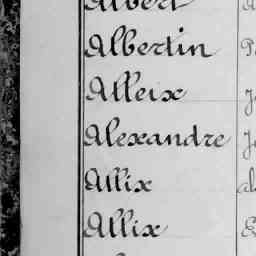 Albert
Albertin
Alleix
Alexandre
Allix
Allix